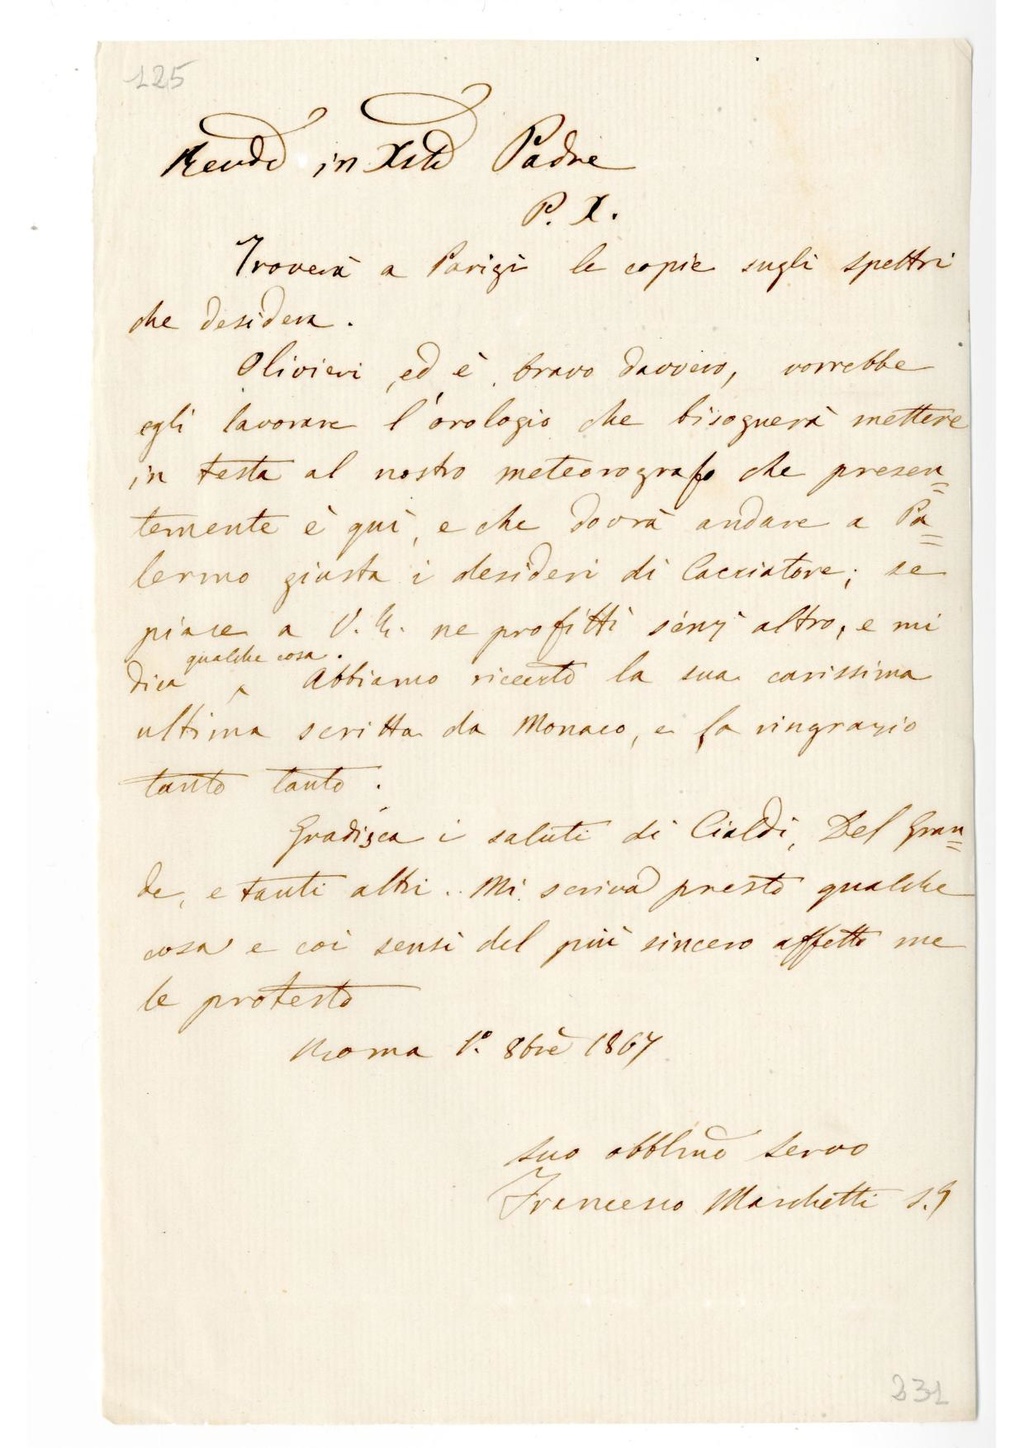 125
Revdo in Xsto Padre
P. X.
Troverà a Parigi le copie sugli spettri
che desidera.
Olivieri, ed è bravo davvero, vorrebbe
egli lavorare l'orologio che bisognerà mettere
in testa al nostro meteorografo che presen=
temente è quì, e che dovrà andare a Pa=
lermo giusta i desideri di Cacciatore; se
piace a V. R. ne profitti senz'altro, e mi
qualche cosa.
dica ^ Abbiamo ricevto la sua carissima
ultima scritta da Monaco, e la ringrazio
tanto tanto.
Gradisca i saluti di Cialdi, Del Gran=
de, e tanti altri.. Mi scriva presto qualche
cosa e coi sensi del più sincero affetto me
le protesto
Roma 1.° 8bre 1867
Suo obblmo servo
Francesco Marchetti S.J
231